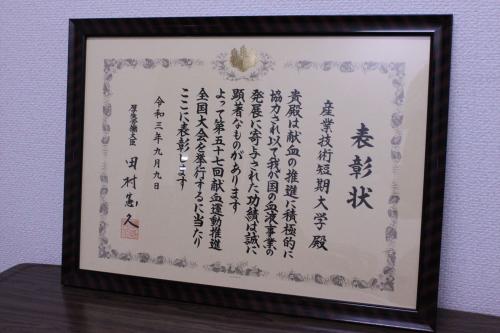 表彰状
産業技術短期大学 殿
貴殿は献血の推進に積極的に
協力され以て我が国の血液事業の
発展に寄与された功績は誠に
顕著なものがあります
よって第五十七回献血運動推進
全国大会を挙行するに当たり
ここに表彰します
令和三年九月九日
厚生労働大臣 田村憲久